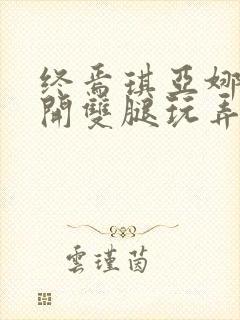 终焉琪亚娜
開雙腿玩弄
雲瑾茵